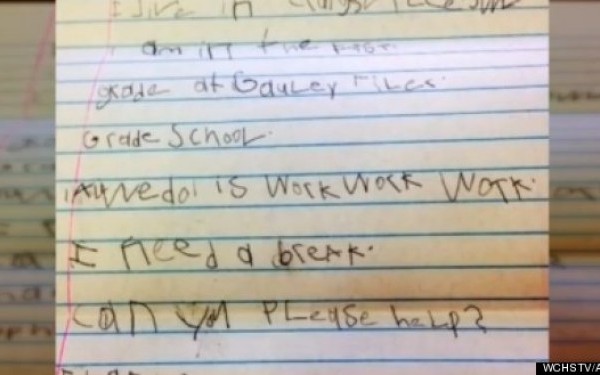 I live in
I am in the
grade at Gauley
Grade School.
All We do is Work Work Work.
I need a break.
Can you Please help?
WCHSTV/A